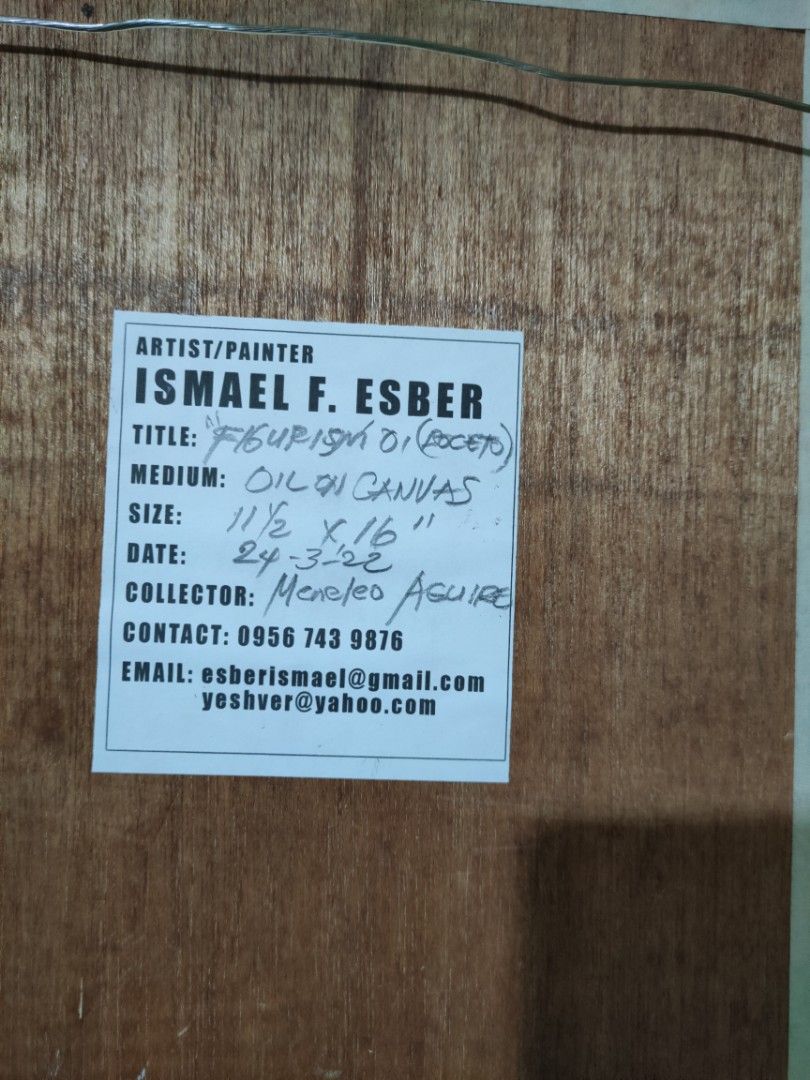 ARTIST/PAINTER
ISMAEL F. ESBER
TITLE: "FIGURISM 01 (BOCETO)
MEDIUM: OIL ON CANVAS
SIZE: 11 1/2 X 16"
DATE: 24-3-'22
COLLECTOR: Meneleo AGUIRE
CONTACT: 0956 743 9876
EMAIL: esberismael@gmail.com
yeshver@yahoo.com